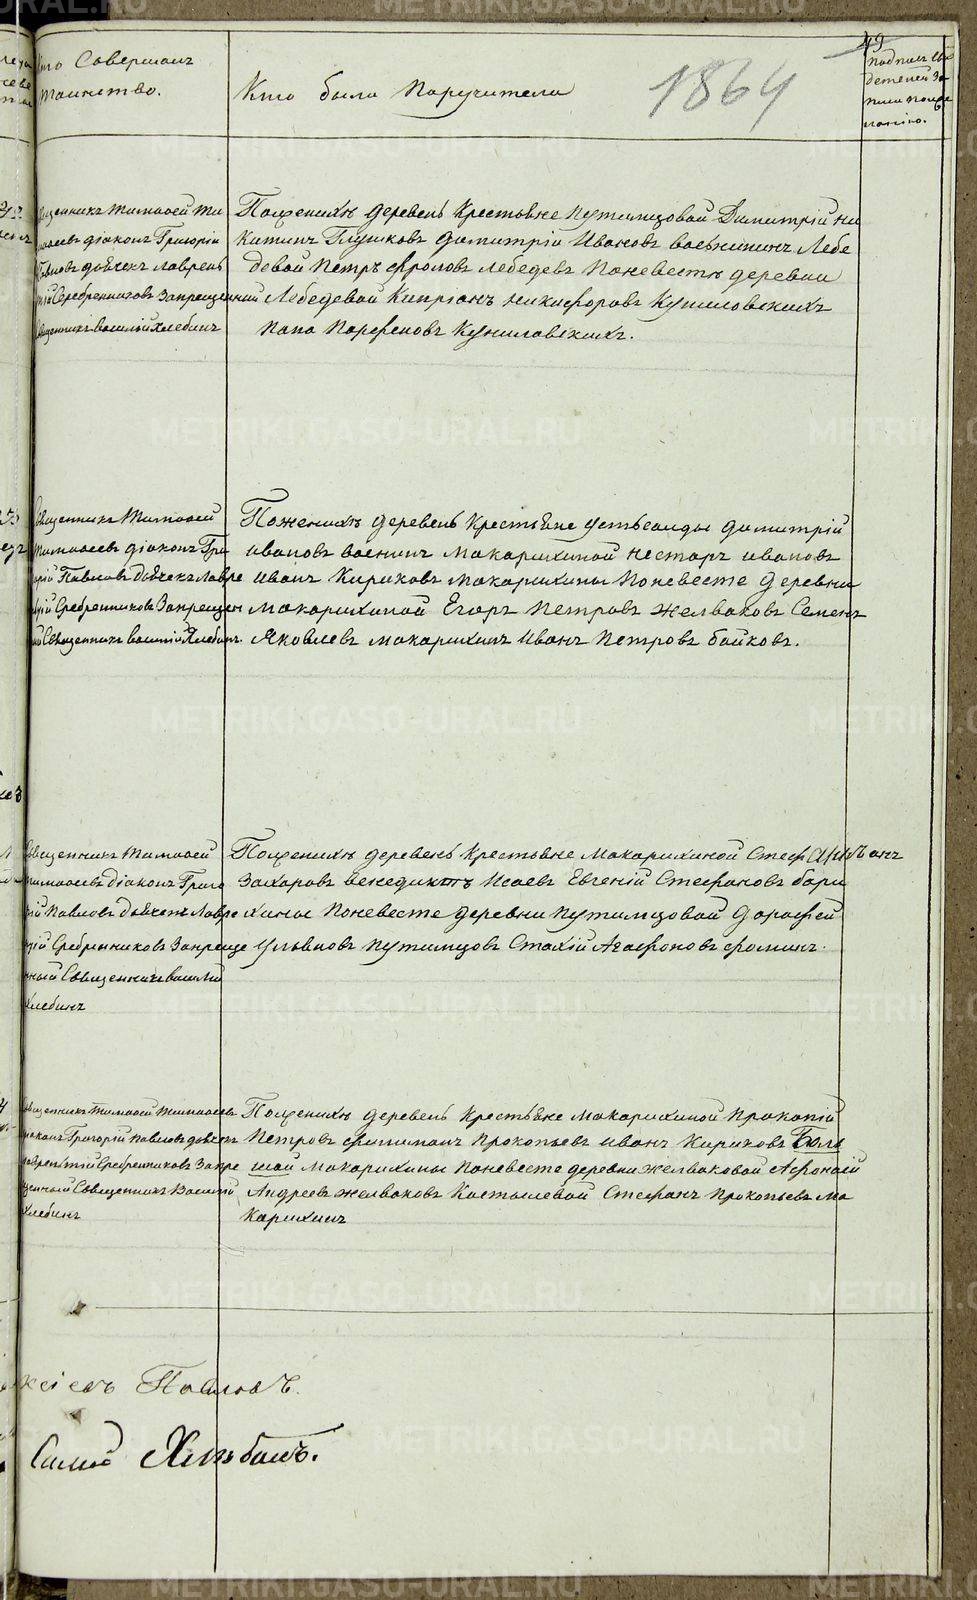 49
Кто Совершалъ
Таинство.
Кто были Поручители
1864
Подпись сви
детелей за
писи по же
ланію.
Священникъ Тимофей Ти
мофеевъ діаконъ Григорій
Павловъ дьячекъ Лаврен
тій Серебренниковъ Запрещенный
Священникъ Василій Хлебинъ
По женихѣ деревень Крестьяне Путимцовой Димитрій Ни
китинъ Глушковъ Димитрій Ивановъ Лебе
девой Петръ Фроловъ Лебедевъ По невестѣ деревни
Лебедевой Кипріянъ Никифоровъ
Парфеновъ
Священникъ Тимофей
Тимофеевъ діаконъ Гри
горій Павловъ дьячекъ Лавре
нтій Серебренниковъ Запрещен
ный Священникъ Василій Хлебинъ
По женихѣ деревень Крестьяне Димитрій
Ивановъ Макарихиной Несторъ Ивановъ
Иванъ Кириковъ Макарихины По невесте деревни
Макарихиной Егоръ Петровъ Желваковъ Семенъ
Яковлевъ Макарихинъ Иванъ Петровъ Байковъ.
Священникъ Тимофей
Тимофеевъ Діаконъ Григо
рій Павловъ дьячекъ Лавре
нтій Серебренниковъ Запреще
нный Священникъ Василій
Хлебинъ
По женихѣ деревень Крестьяне Макарихиной Стефанъ
Захаровъ Венедиктъ Исаевъ Евгеній Стефановъ
По невесте деревни Путимцовой Дорофей
Путимцовъ Стахій Агафоновъ Фоминъ.
Священникъ Тимофей Тимофеевъ
діаконъ Григорій Павловъ дьячекъ
Лаврентій Серебренниковъ Запре
щенный Священникъ Василій
Хлебинъ
По женихѣ деревень Крестьяне Макарихиной Прокопій
Петровъ Прокопьевъ Иванъ Кириковъ
Макарихины По невесте деревни Желваковой
Андреевъ Желваковъ Костылевой Стефанъ Прокопьевъ Ма
карихинъ
Павловъ.
Хлѣбинъ.
METRIKI.GASO-URAL.RU